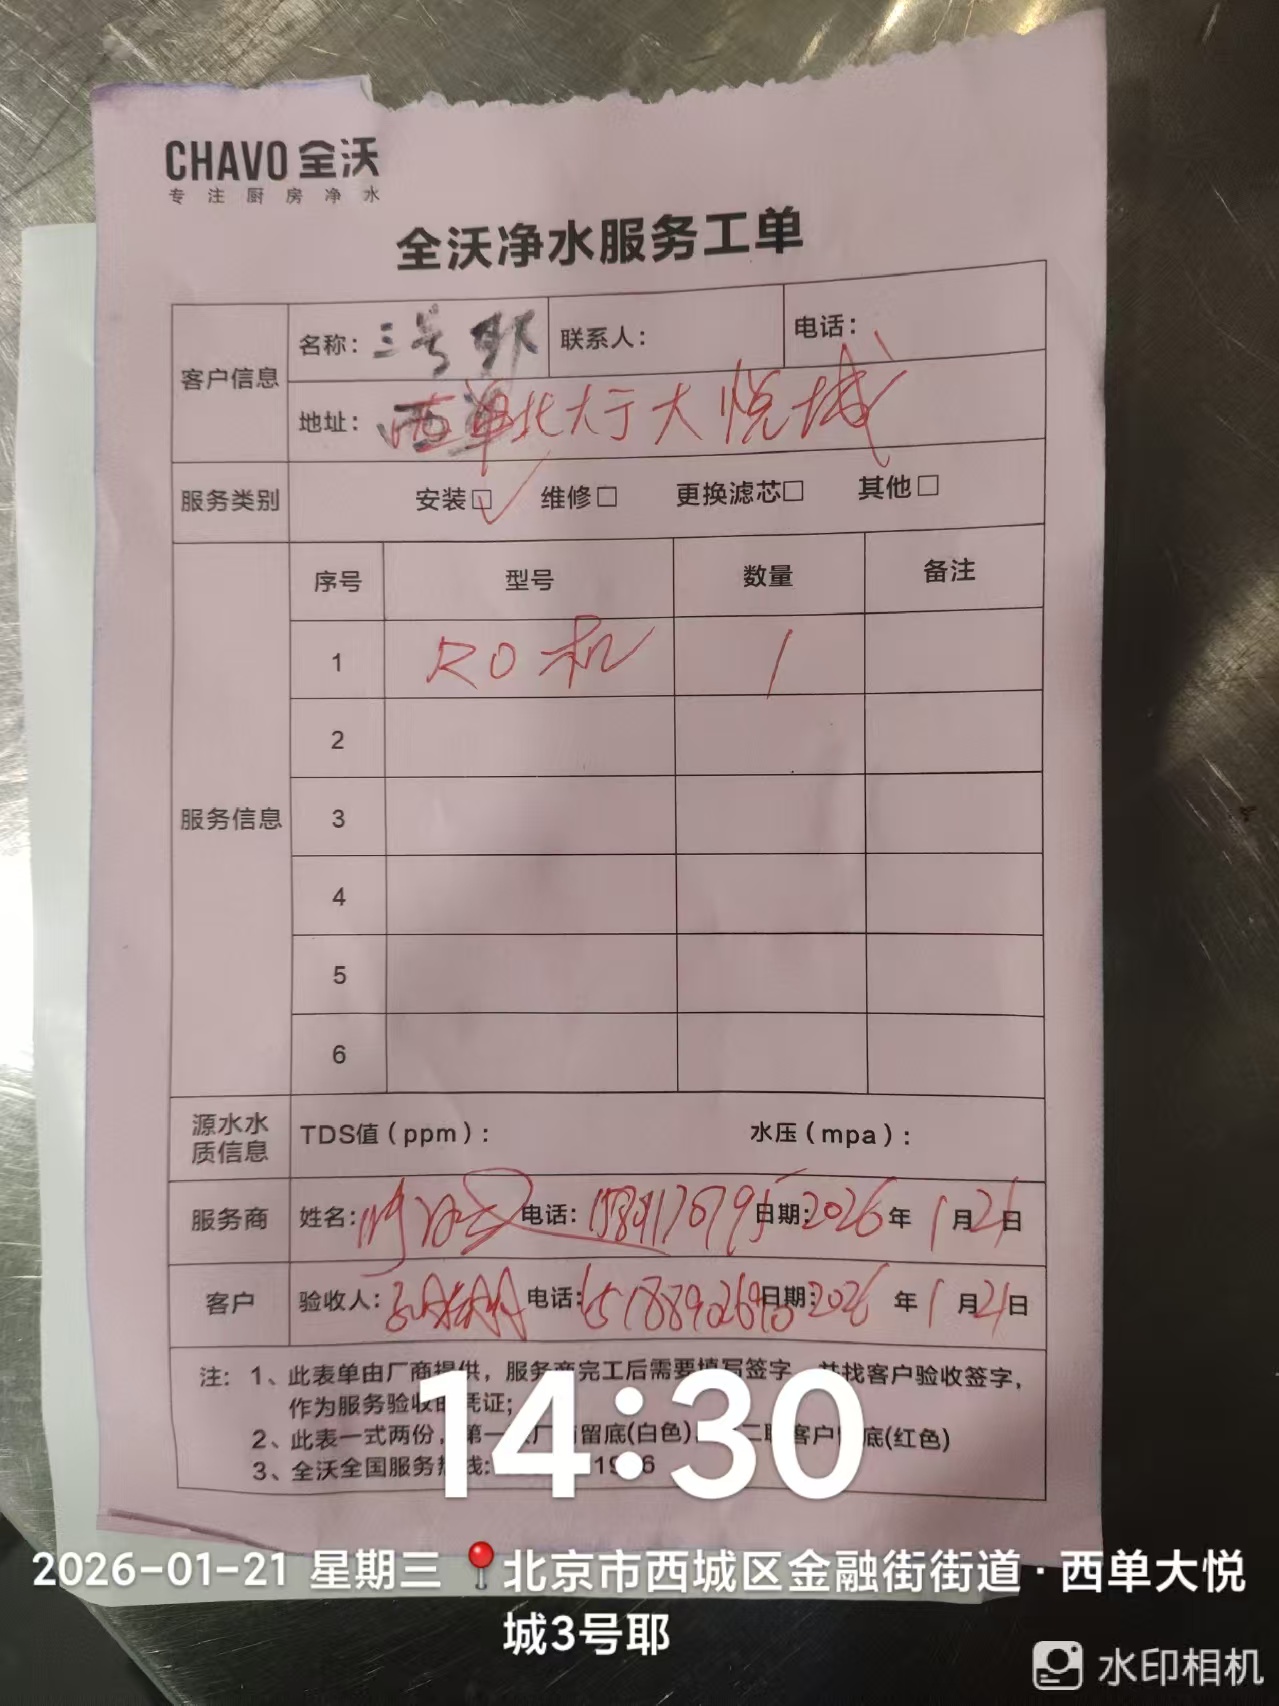 CHAVO 全沃
专注厨房净水
全沃净水服务工单
客户信息 名称：三号耶 联系人： 电话：
地址：西单北大于大悦城
服务类别 安装□✓ 维修□ 更换滤芯□ 其他□
服务信息 序号 型号 数量 备注
1 RO机 1
2
3
4
5
6
源水水质信息 TDS值（ppm）： 水压（mpa）：
服务商 姓名： 电话： 日期：2026年1月21日
客户 验收人： 电话： 日期：2026年1月21日
注：1、此表单由厂商提供，服务商完工后需要填写签字，并找客户验收签字，
作为服务验收的凭证；
2、此表一式两份，第一 留底(白色) 二联客户 底(红色)
3、全沃全国服务热线：
14:30
2026-01-21 星期三 北京市西城区金融街街道·西单大悦
城3号耶
水印相机